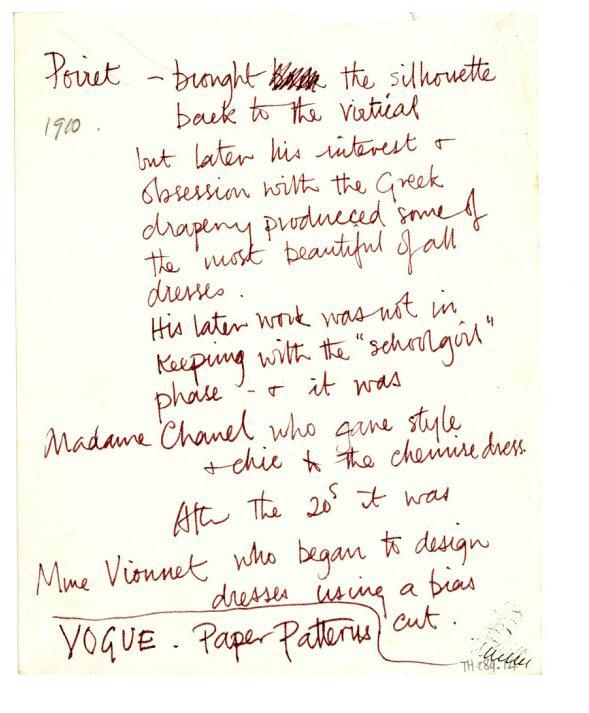 Poiret - brought the silhouette
1910.
back to the virtical
but later his interest +
obsession with the Greek
drapery produced some of
the most beautiful of all
dresses.
His later work was not in
keeping with the "schoolgirl"
phase - + it was
Madame Chanel who gave style
+ chic to the chemise dress.
After the 20s it was
Mme Vionnet who began to design
dresses using a bias
cut.
VOGUE. Paper Patterns